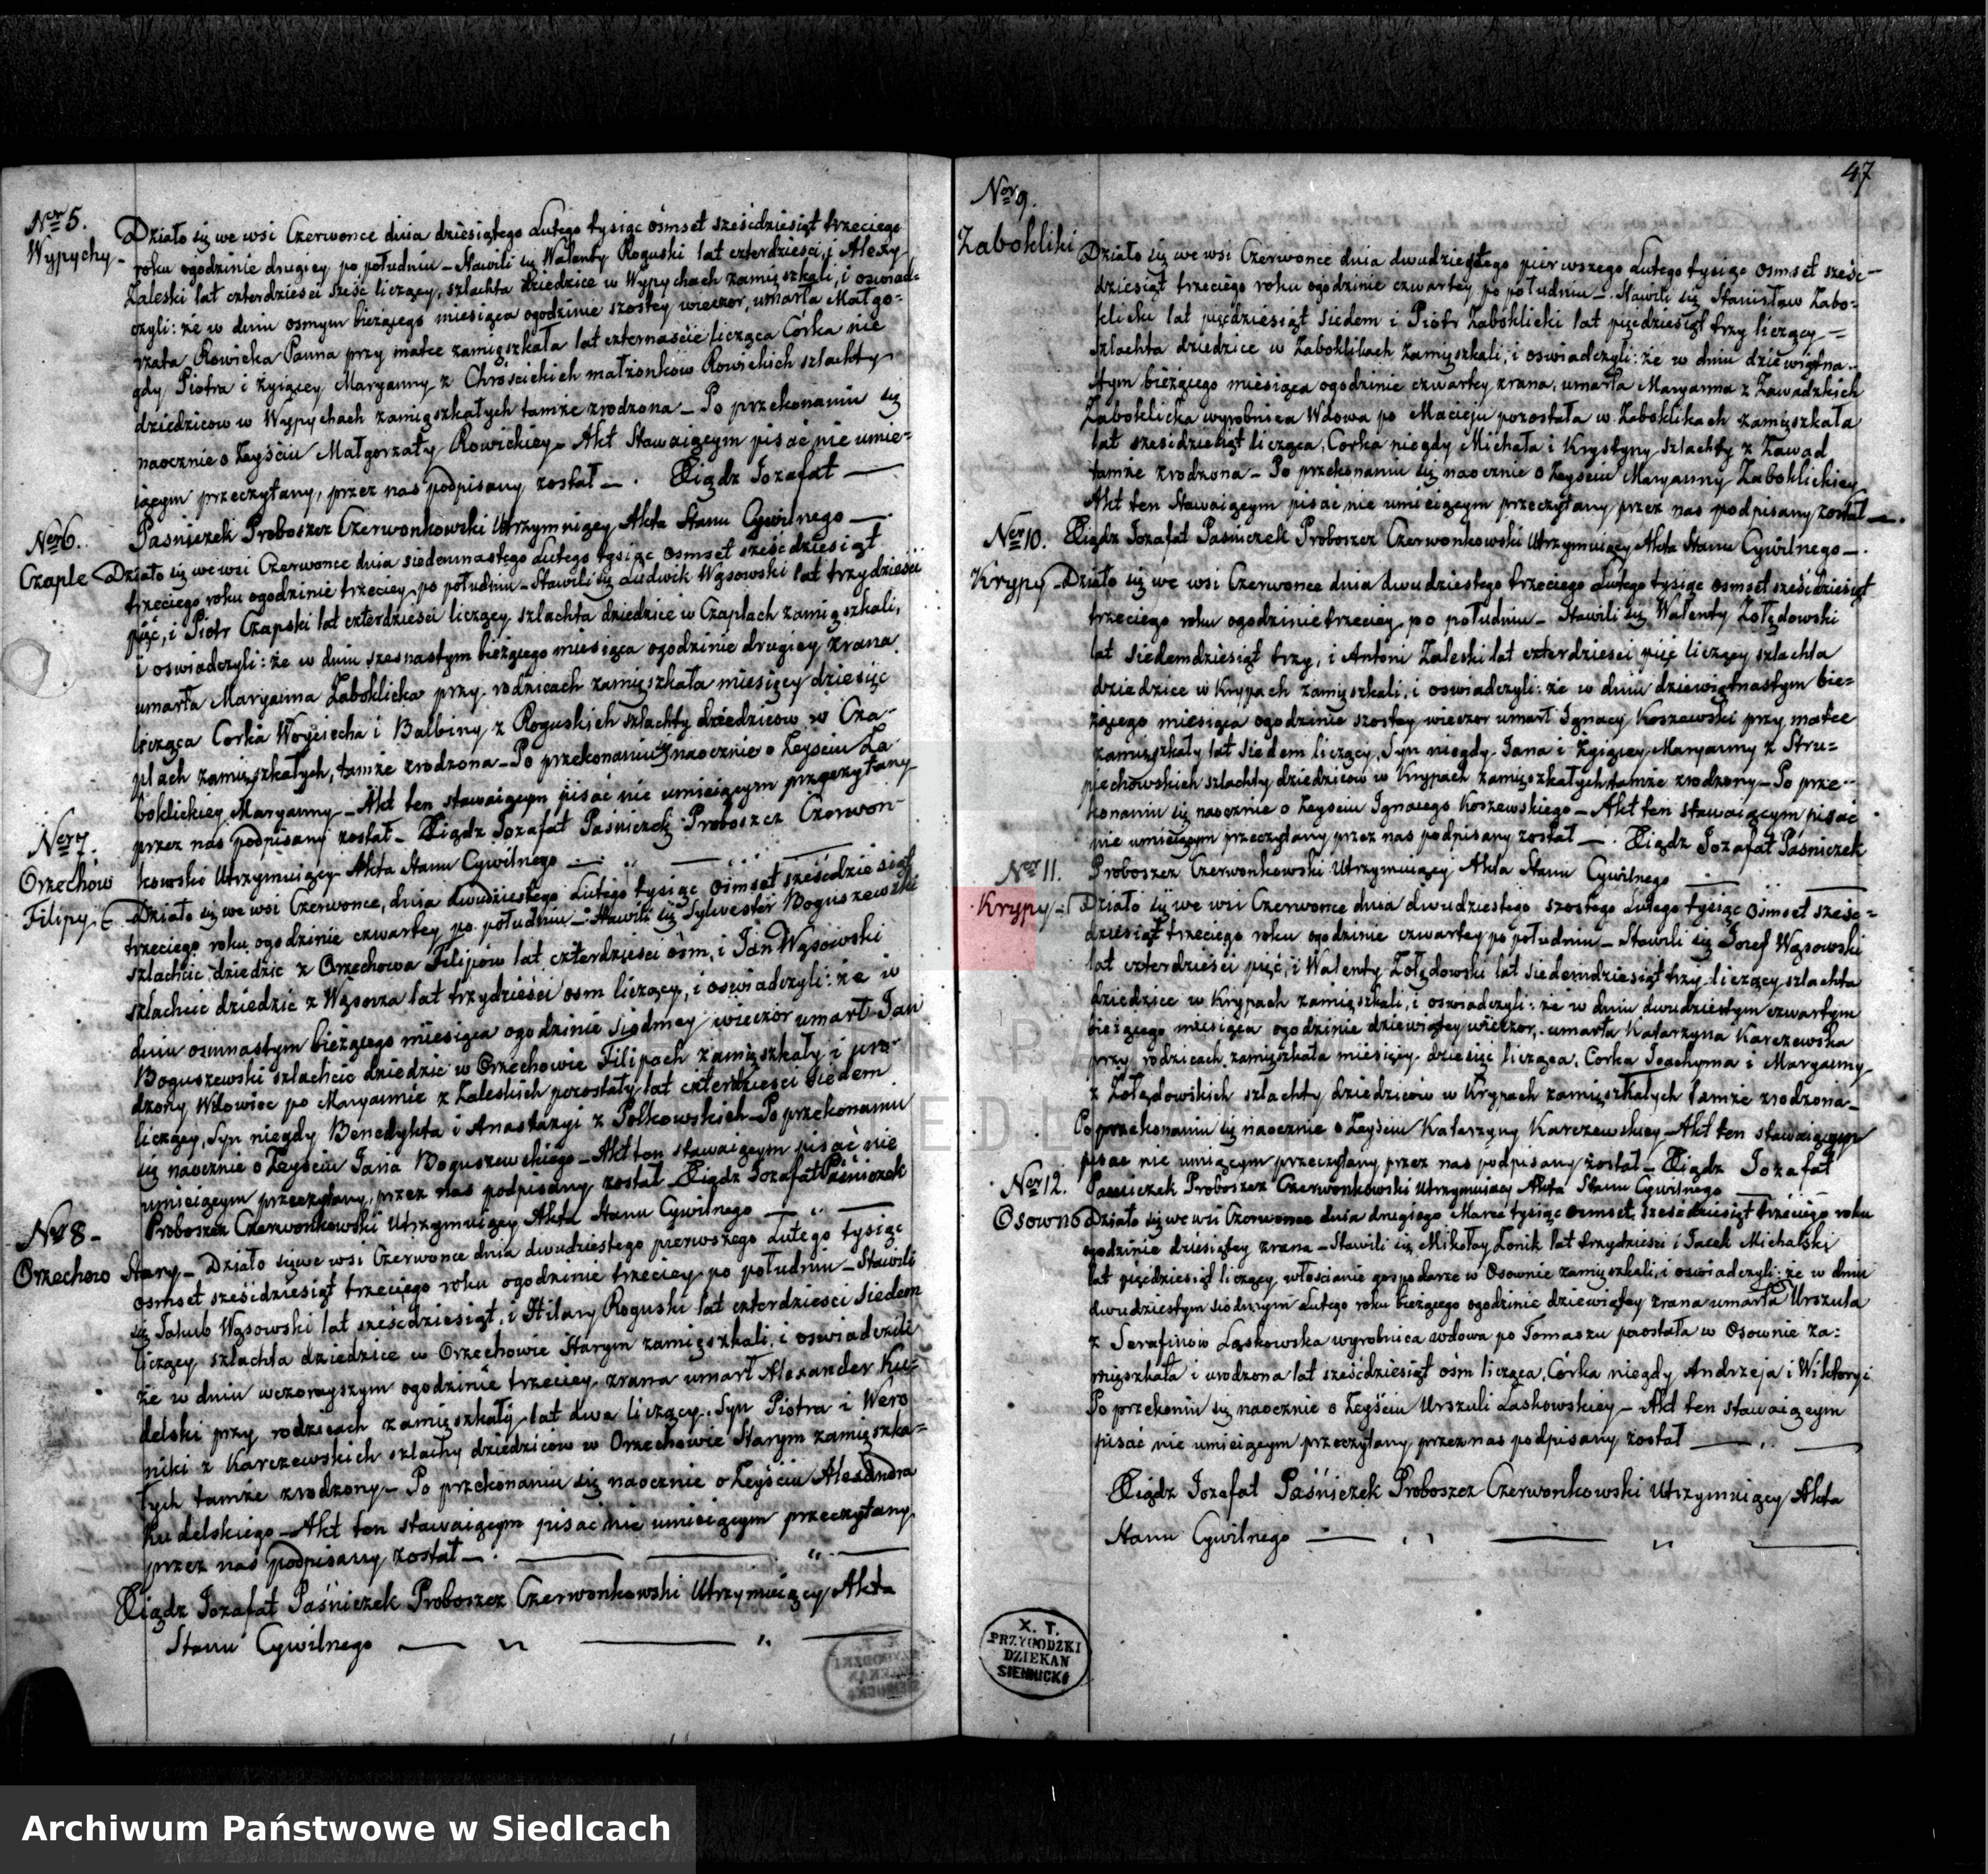 Ner 5.
Wypychy-
Działo się we wsi Czerwonce dnia dziesiątego Lutego tysiąc ośmset sześćdziesiąt trzeciego
roku ogodzinie drugiey po południu – Stawili się Walenty Roguski lat czterdzieści, i Alexy
Zaleski lat czterdzieści sześć liczący, szlachta dziedzice w Wypychach zamięszkali, i oswiad-
czyli: że w dniu osmym bieżącego miesiąca ogodzinie szostey wieczor, umarła Małgo-
rzata Rowicka Panna przy matce zamięszkała lat czternaście licząca Córka nie
gdy Piotra i żyiącey Maryanny z Chróścickich małżonków Rowickich szlachty
dziedzicow w Wypychach zamięszkałych tamże zrodzona – Po przekonaniu się
naocznie o Zeyściu Małgorzaty Rowickiey – Akt Stawaiącym pisać nie umie-
iącym przeczytany, przez nas podpisany został –. Xiądz Jozafat —
Paśniczek Proboszcz Czerwonkowski Utrzymuiący Akta Stanu Cywilnego —.
Ner 6.
Czaple
Działo się we wsi Czerwonce dnia siedemnastego Lutego tysiąc osmset sześćdziesiąt
trzeciego roku ogodzinie trzeciey po południu – Stawili się Ludwik Wąsowski lat trzydzieści
pięć, i Piotr Czapski lat czterdzieści liczący, szlachta dziedzice w Czaplach zamięszkali,
i oswiadczyli: że w dniu szesnastym bieżącego miesiąca ogodzinie drugiey zrana
umarła Maryanna Zaboklicka przy rodzicach zamięszkała miesięcy dziesięć
licząca Corka Woyciecha i Balbiny z Roguskich szlachty dziedzicow w Cza-
plach zamięszkałych, tamże zrodzona – Po przekonaniu się naocznie o Zeyściu Za-
boklickiey Maryanny – Akt ten stawaiącym pisać nie umieiącym przeczytany
przez nas podpisany został – Xiądz Jozafat Paśniczek Proboszcz Czerwon-
kowski Utrzymuiący Akta Stanu Cywilnego —
Ner 7.
Orzechów
Filipy
Działo się we wsi Czerwonce, dnia dwudziestego Lutego tysiąc ośmset sześćdziesiąt
trzeciego roku ogodzinie czwartey po południu – Stawili się Sylwester Boguszewski
szlachcic dziedzic z Orzechowa Filipiow lat czterdzieści osm, i Jan Wąsowski
szlachcic dziedzic z Wąsosza lat trzydzieści osm liczący, i oswiadczyli: że w
dniu osmnastym bieżącego miesiąca ogodzinie siodmey wieczor umarł Jan
Boguszewski szlachcic dziedzic w Orzechowie Filipach zamięszkały i uro-
dzony Wdowiec po Maryannie z Zaleskich pozostały lat czterdzieści siedem
liczący, Syn niegdy Benedykta i Anastazyi z Polkowskich – Po przekonaniu
się naocznie o Zeyściu Jana Boguszewskiego – Akt ten stawaiącym pisać nie
umieiącym przeczytany, przez nas podpisany został Xiądz Jozafat Paśniczek
Proboszcz Czerwonkowski Utrzymuiący Akta Stanu Cywilnego —
Ner 8-
Orzechow
Stary – Działo się we wsi Czerwonce dnia dwudziestego pierwszego Lutego tysiąc
osmset sześćdziesiąt trzeciego roku ogodzinie trzeciey po południu – Stawili
się Jakub Wąsowski lat sześćdziesiąt, i Hilary Roguski lat czterdzieści siedem
liczący szlachta dziedzice w Orzechowie Starym zamięszkali, i oswiadczyli
że w dniu wczorayszym ogodzinie trzeciey zrana umarł Alexander Ku-
delski przy rodzicach zamięszkały lat dwa liczący, Syn Piotra i Wero
niki z Karczewskich szlachty dziedziców w Orzechowie Starym zamięszka-
łych tamże zrodzony – Po przekonaniu się naocznie o Zeyściu Alexandra
Kudelskiego – Akt ten stawaiącym pisać nie umieiącym przeczytany
przez nas podpisany został –.
Xiądz Jozafat Paśniczek Proboszcz Czerwonkowski Utrzymuiący Akta
Stanu Cywilnego —
47
Ner 9.
Zabokliki
Działo się we wsi Czerwonce dnia dwudziestego pierwszego Lutego tysiąc osmset sześć-
dziesiąt trzeciego roku ogodzinie czwartey po południu –. Stawili się Stanisław Zabo-
klicki lat pięćdziesiąt siedem i Piotr Zaboklicki lat pięćdziesiąt trzy liczący –
szlachta dziedzice w Zaboklikach zamięszkali, i oswiadczyli: że w dniu dziewiętna-
stym bieżącego miesiąca ogodzinie czwartey zrana, umarła Maryanna z Zawadzkich
Zaboklicka wyrobnica Wdowa po Macieju pozostała w Zaboklikach zamięszkała
lat sześćdziesiąt licząca, Corka niegdy Michała i Krystyny szlachty z Zawad
tamże zrodzona – Po przekonaniu się naocznie o Zeyściu Maryanny Zaboklickiey
Akt ten Stawaiącym pisać nie umieiącym przeczytany przez nas podpisany został –.
Xiądz Jozafat Paśniczek Proboszcz Czerwonkowski Utrzymuiący Akta Stanu Cywilnego –.
Ner 10.
Krypy –
Działo się we wsi Czerwonce dnia dwudziestego trzeciego Lutego tysiąc osmset sześćdziesiąt
trzeciego roku ogodzinie trzeciey po południu – Stawili się Walenty Zołędowski
lat siedemdziesiąt trzy, i Antoni Zaleski lat czterdzieści pięć liczący szlachta
dziedzice w Krypach zamięszkali, i oswiadczyli: że w dniu dziewiętnastym bie-
żącego miesiąca ogodzinie szostey wieczor umarł Ignacy Koszewski przy matce
zamięszkały lat siedem liczący, Syn niegdy Jana i żyiącey Maryanny z Stru-
piechowskich szlachty dziedziców w Krypach zamięszkałych tamże zrodzony – Po prze-
konaniu się naocznie o Zeyściu Ignacego Koszewskiego – Akt ten stawaiącym pisać
nie umieiącym przeczytany przez nas podpisany został –. Xiądz Jozafat Paśniczek
Proboszcz Czerwonkowski Utrzymuiący Akta Stanu Cywilnego
Ner 11.
Krypy –
Działo się we wsi Czerwonce dnia dwudziestego szostego Lutego tysiąc ośmset sześć-
dziesiąt trzeciego roku ogodzinie czwartey po południu – Stawili się Jozef Wąsowski
lat czterdzieści pięć, i Walenty Zołędowski lat siedemdziesiąt trzy liczący szlachta
dziedzice w Krypach zamięszkali, i oswiadczyli: że w dniu dwudziestym czwartym
bieżącego miesiąca ogodzinie dziewiątey wieczor, umarła Katarzyna Karczewska
przy rodzicach zamięszkała miesięcy dziesięć licząca, Corka Joachyma i Maryanny
z Zołędowskich szlachty dziedziców w Krypach zamięszkałych tamże zrodzona –
Po przekonaniu się naocznie o Zeyściu Katarzyny Karczewskiey – Akt ten stawaiącym
pisać nie umiącym przeczytany przez nas podpisany został – Xiądz Jozafat
Paśniczek Proboszcz Czerwonkowski Utrzymuiący Akta Stanu Cywilnego
Ner 12.
Osowno
Działo się we wsi Czerwonce dnia drugiego Marca tysiąc osmset sześćdziesiąt trzeciego roku
ogodzinie dziesiątey zrana – Stawili się Mikołay Zonik lat trzydzieści i Jacek Michalski
lat pięćdziesiąt liczący, włościanie gospodarze w Osownie zamięszkali, i oswiadczyli: że w dniu
dwudziestym siodmym Lutego roku bieżącego ogodzinie dziewiątey zrana umarła Urszula
z Serafinow Laskowska wyrobnica wdowa po Tomaszu pozostała w Osownie za-
mięszkała i urodzona lat sześćdziesiąt ośm licząca, Córka niegdy Andrzeja i Wiktoryi
Po przekoniu się naocznie o Zeyściu Urszuli Laskowskiey – Akt ten stawaiącym
pisać nie umieiącym przeczytany, przez nas podpisany został —
Xiądz Jozafat Paśniczek Proboszcz Czerwonkowski Utrzymuiący Akta
Stanu Cywilnego —
X. T.
PRZYGODZKI
DZIEKAN
SIENNICKI
Archiwum Państwowe w Siedlcach